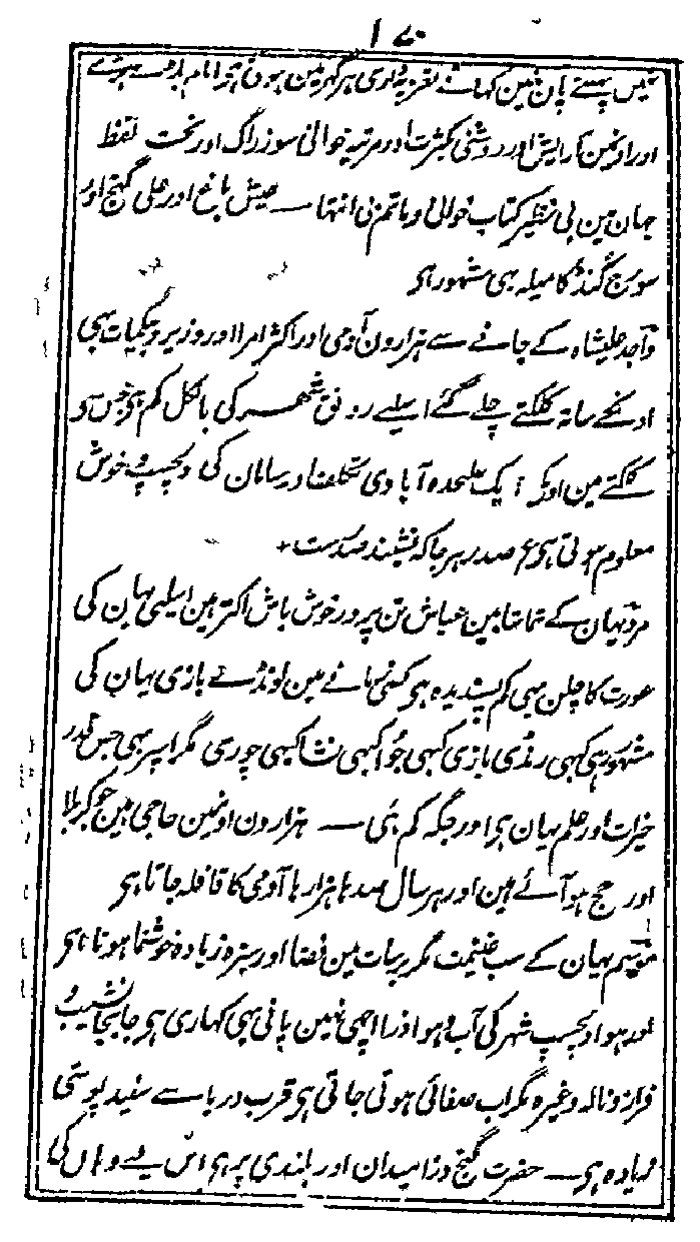 ۱۷
نہیں پہنتے پان نہین کہاتے تعزیہ داری ہر گہر مین ہوتی ہی امام باڑے
اور اونمین آرایش اور روشنی بکثرت اور مرثیہ خوانی سوز راگ اور تحت لفظ
جہان مین بی نظیر کتاب خوانی و ماتم بی انتہا ــ عیش باغ اور علی گنج اور
سورج کُنڈ کا میلہ بہی مشہور ہی
واجد علیشاہ کے جانے سے ہزارون آدمی اور اکثر امرا اور وزیر و بیگمات بہی
اونکے ساتہ کلکتے چلے گئے اسلیے رونق شہر کی بالکل کم ہی جس سے
کلکتے مین اونکی ایک علٰحدہ آبادی تکلف اور سامان کی دلچسپ و خوش
معلوم ہوتی ہی ع صدر ہر جا کہ نشیند صدرست +
مرد یہان کے تماشابین عیاش تن پرور خوش باش اکثر ہین اسلیی یہان کی
عورت کا چلن بہی کم پسندیدہ ہی کمی زمانے مین لونڈے بازی یہان کی
مشہور تہی کبہی رنڈی بازی کبہی جُوا کبہی نشا کبہی چوری مگر اسپر بہی جس قدر
خیرات اور علم یہان ہی اور جگہ کم ہی ــ ہزارون اونمین حاجی ہین جو کربلا
اور حج ہو آئے ہین اور ہر سال صدہا ہزارہا آدمی کا قافلہ جاتا ہی
موسم یہان کے سب غنیمت مگر برسات مین فضا اور سبزہ زیادہ خوشنما ہوتا ہی
اور ہوا دلچسپ شہر کی آب و ہوا ذرا اچہی نہین پانی بہی کہاری ہی جابجا نشیب و
فراز و نالہ وغیرہ مگر اب صفائی ہوتی جاتی ہی قرب دریا سے سفید پوشی
زیادہ ہی ــ حضرت گنج ذرا میدان اور بلندی پر ہی اس لیے وہاں کی